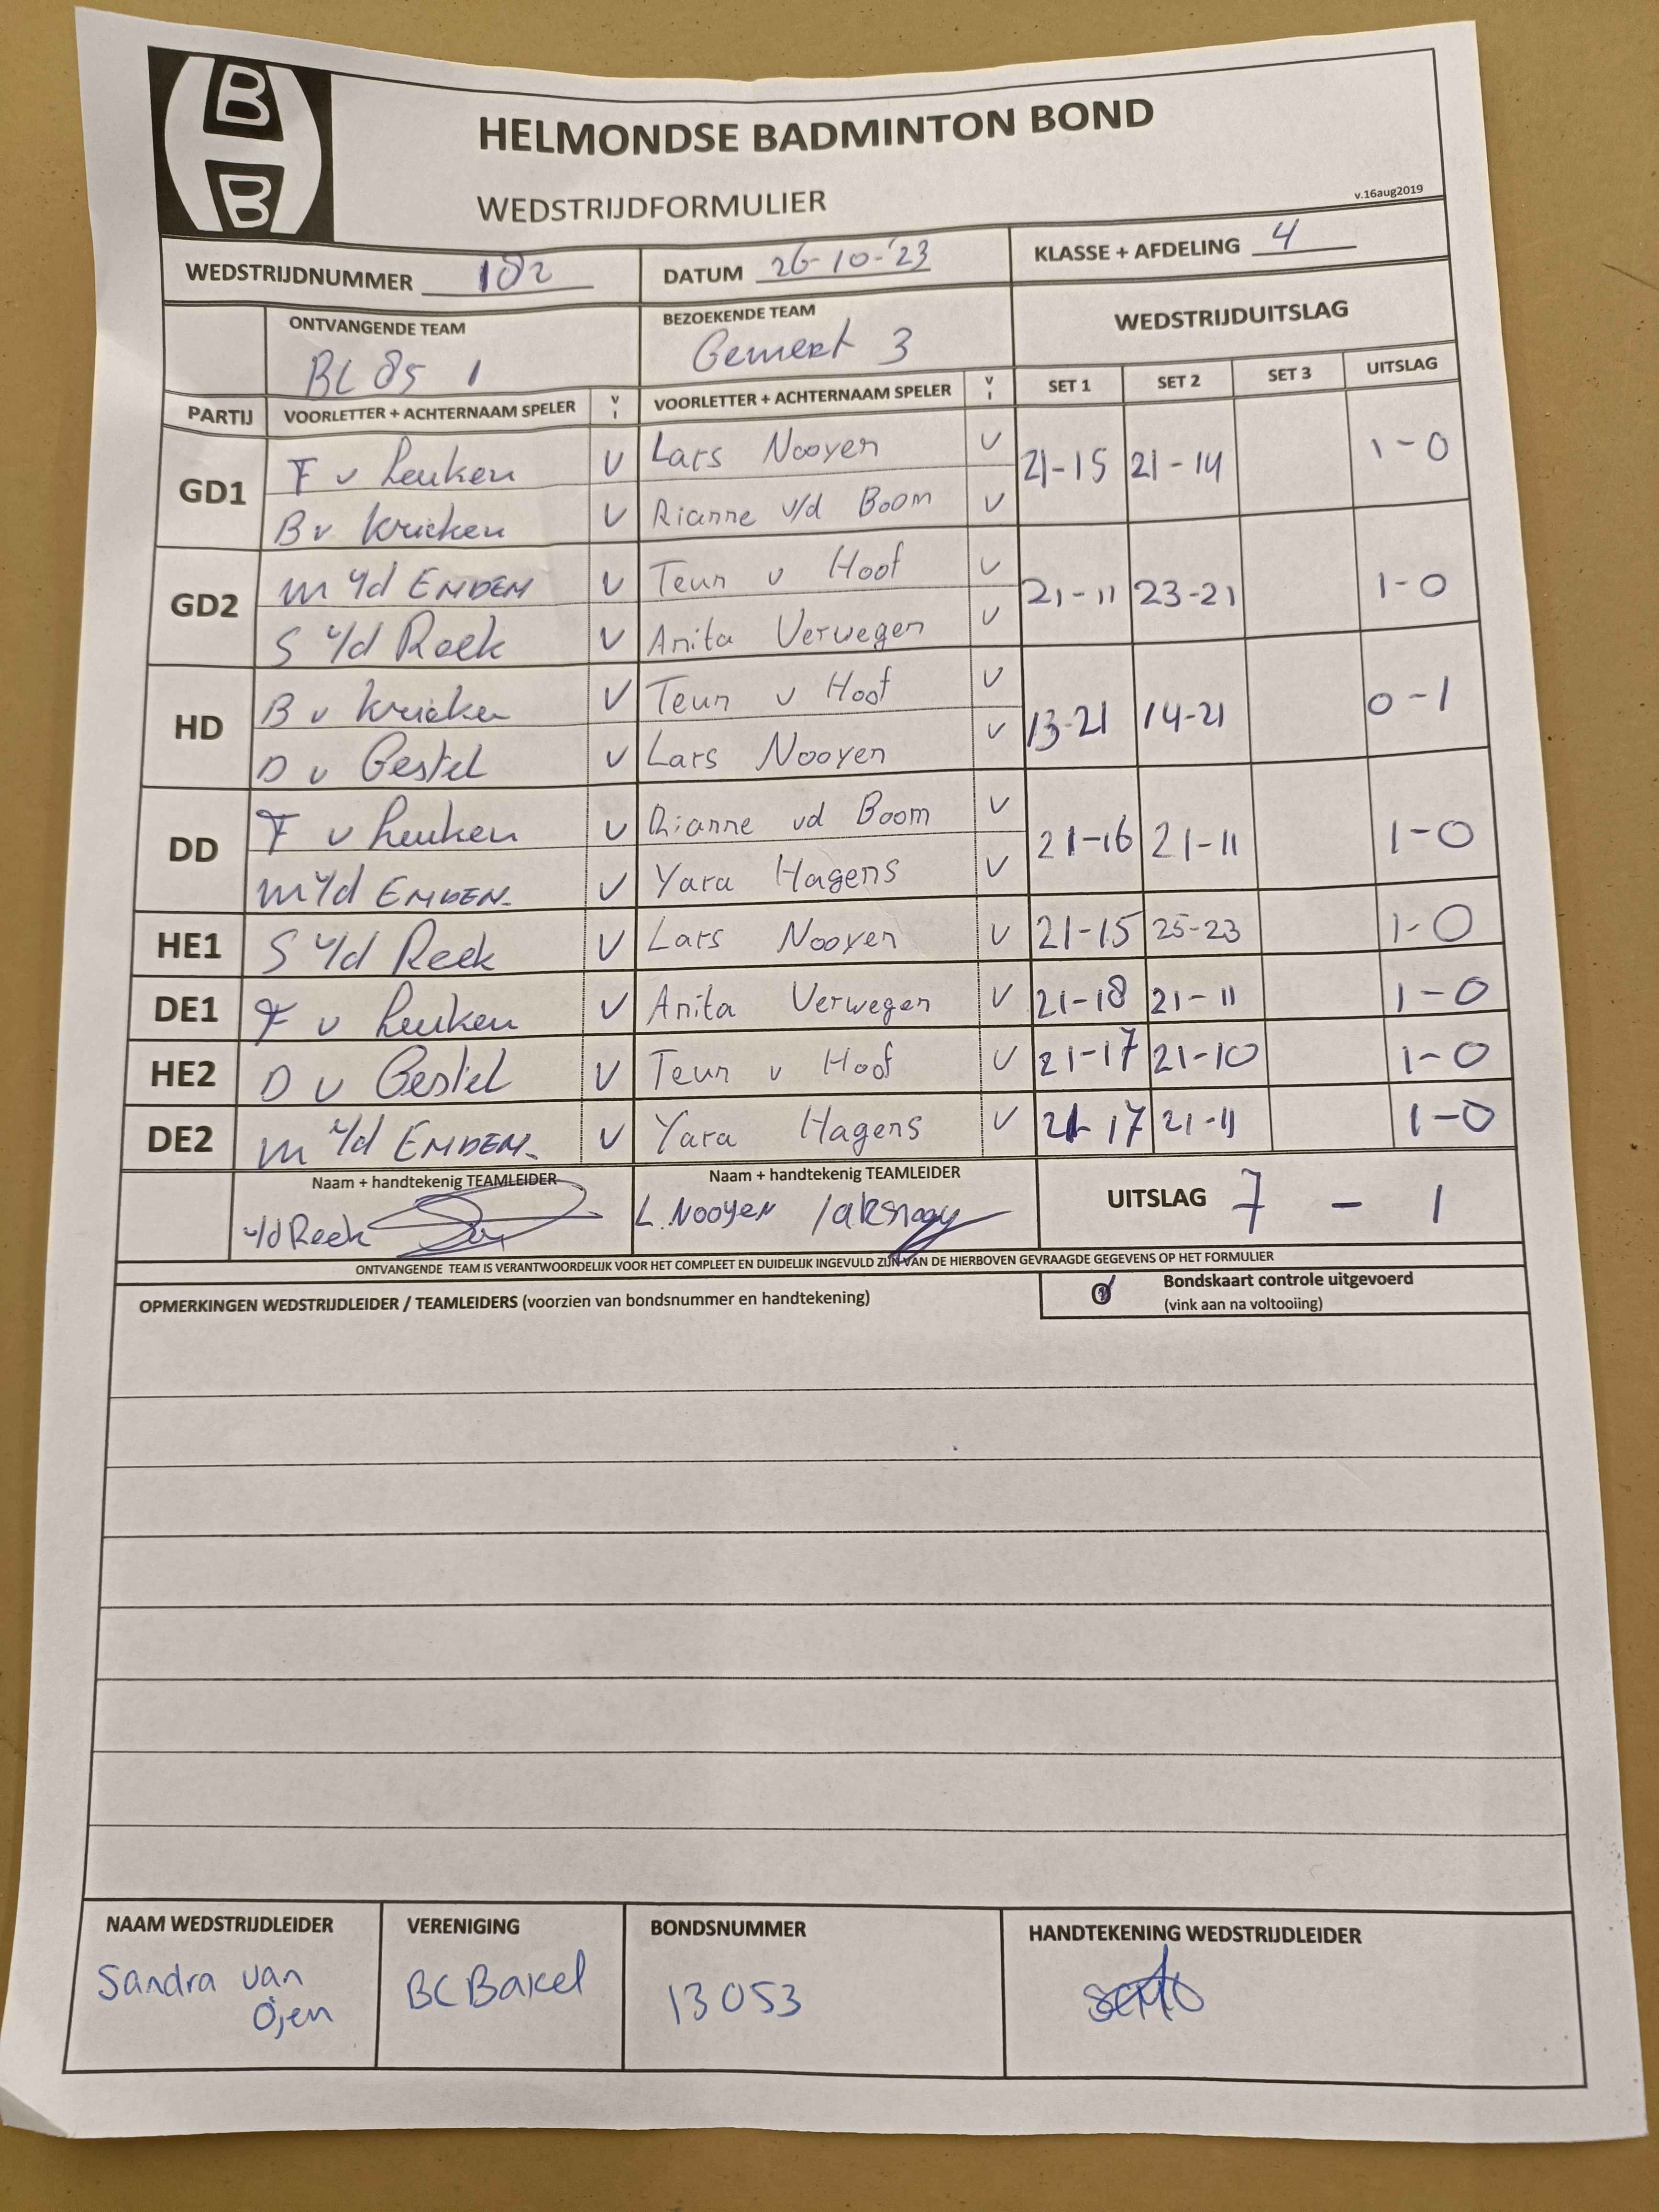 B
B
HELMONDSE BADMINTON BOND
WEDSTRIJDFORMULIER
v.16aug2019
WEDSTRIJDNUMMER 182 DATUM 26-10-'23 KLASSE + AFDELING 4
ONTVANGENDE TEAM BEZOEKENDE TEAM WEDSTRIJDUITSLAG
BC 85 1 Gemert 3
PARTIJ VOORLETTER + ACHTERNAAM SPELER V I VOORLETTER + ACHTERNAAM SPELER V I SET 1 SET 2 SET 3 UITSLAG
GD1 F v Leuken V Lars Nooyen V 21-15 21-14 1-0
B v Kricken V Rianne v/d Boom V
GD2 M v/d EMDEN V Teun v Hoof V 21-11 23-21 1-0
S v/d Reek V Anita Verwegen V
HD B v Kricken V Teun v Hoof V 13-21 14-21 0-1
D v Gestel V Lars Nooyen V
DD F v Leuken V Rianne vd Boom V 21-16 21-11 1-0
M v/d EMDEN- V Yara Hagens V
HE1 S v/d Reek V Lars Nooyen V 21-15 25-23 1-0
DE1 F v Leuken V Anita Verwegen V 21-18 21-11 1-0
HE2 D v Gestel V Teun v Hoof V 21-17 21-10 1-0
DE2 M v/d EMDEN- V Yara Hagens V 21-17 21-11 1-0
Naam + handtekenig TEAMLEIDER Naam + handtekenig TEAMLEIDER UITSLAG 7 - 1
v/d Reek L. Nooyen
ONTVANGENDE TEAM IS VERANTWOORDELIJK VOOR HET COMPLEET EN DUIDELIJK INGEVULD ZIJN VAN DE HIERBOVEN GEVRAAGDE GEGEVENS OP HET FORMULIER
OPMERKINGEN WEDSTRIJDLEIDER / TEAMLEIDERS (voorzien van bondsnummer en handtekening)
Bondskaart controle uitgevoerd
(vink aan na voltooiing)
NAAM WEDSTRIJDLEIDER VERENIGING BONDSNUMMER HANDTEKENING WEDSTRIJDLEIDER
Sandra van BC Bakel 13053
Oijen